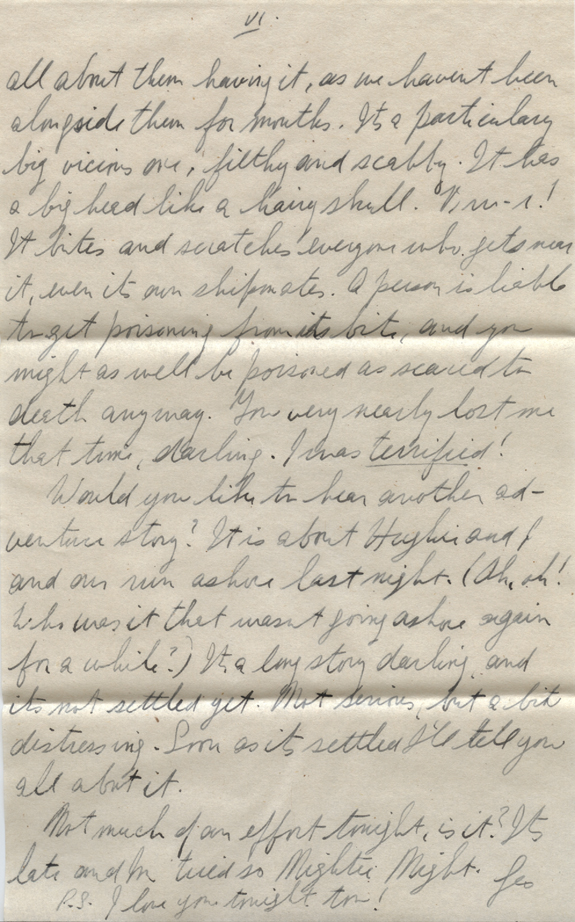 VI.
all about them having it, as we havent been
alongside them for months. Its a particulary
big vicious one, filthy and scabby. It has
a big head like a hairy skull.
It bites and scratches everyone who gets near
it, even its own shipmates. A person is liable
to get poisoning from its bite, and you
might as well be poisoned as scared to
death anyway. You very nearly lost me
that time, darling. I was terrified!
Would you like to hear another ad-
venture story? It is about Hughie and I
and our run ashore last night. (Oh, oh!
Who was it that wasnt going ashore again
for a while?) Its a long story darling, and
its not settled yet. Not serious, but a bit
distressing. Soon as its settled I'll tell you
all about it.
Not much of an effort tonight, is it? Its
late and Im tired so Nightie Night.
P.S. I love you tonight too!